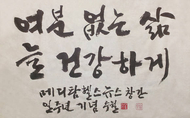 여분 없는 삶
늘 건강하게
메디팜헬스뉴스 창간
일주년 기념